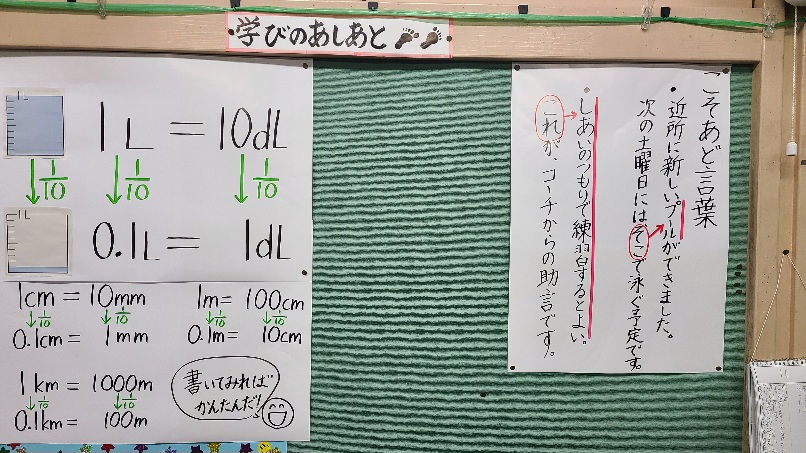 学びのあしあと
1L
1L = 10dL
1/10 1/10 1/10
1L
0.1L = 1dL
1cm = 10mm
1/10 1/10
0.1cm = 1mm
1m = 100cm
1/10 1/10
0.1m = 10cm
1km = 1000m
1/10 1/10
0.1km = 100m
書いてみれば
かんたんだ!
こそあど言葉
・近所に新しいプールができました。
次の土曜日にはそこで泳ぐ予定です。
・しあいのつもりで練習するとよい。
これが、コーチからの助言です。